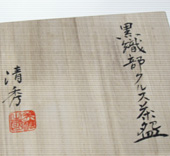 黒織部クルス茶盌
清秀